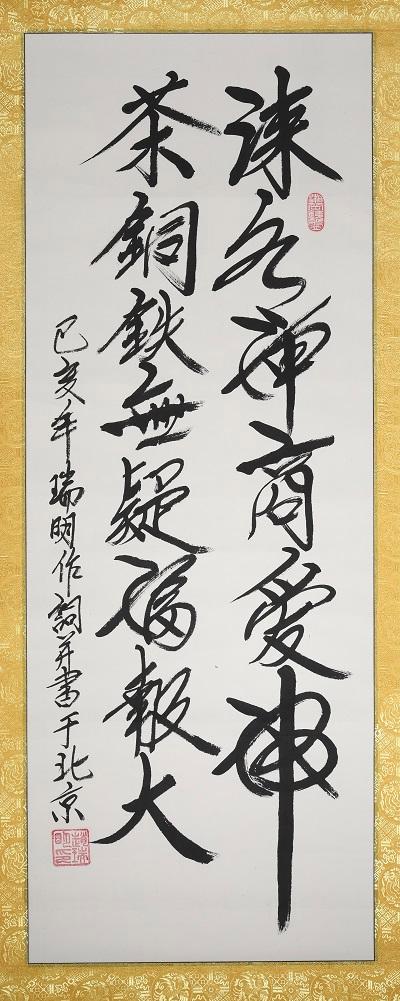 商愛神
茶銅鉄無疑福報大
己亥年瑞明作詞并書于北京